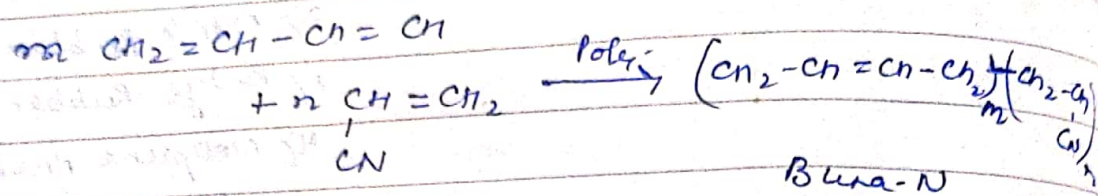 m CH2 = CH - CH = CH
+ n CH = CH2
CN
Poly. → (CH2 - CH = CH - CH2)m (CH2 - CH)n
CN
Buna-N